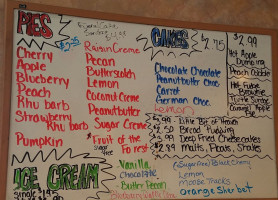 PIES
$3.25
Cherry
Apple
Blueberry
Peach
Rhu barb
Strawberry
Rhu barb
Pumpkin
Raisin Creme
Pecan
Lemon
Coconut Creme
Peanutbutter
Sugar Creme
Fruit of the
Forest
CAKES
$2.75
Chocolate Chocolate
Peanutbutter Choc
Carrot
German Choc
Lemon
$2.99
Hot Apple
Dumpling
Peach Cobbler
Hot Fudge
Brownie
Little Bit of Heaven
Bread Pudding
Deep Fried Cheesecakes
Malts, Floats, Shakes
ICE CREAM
Vanilla
Chocolate
Butter Pecan
Black Cherry
Lemon
Moose Tracks
Orange Sherbet